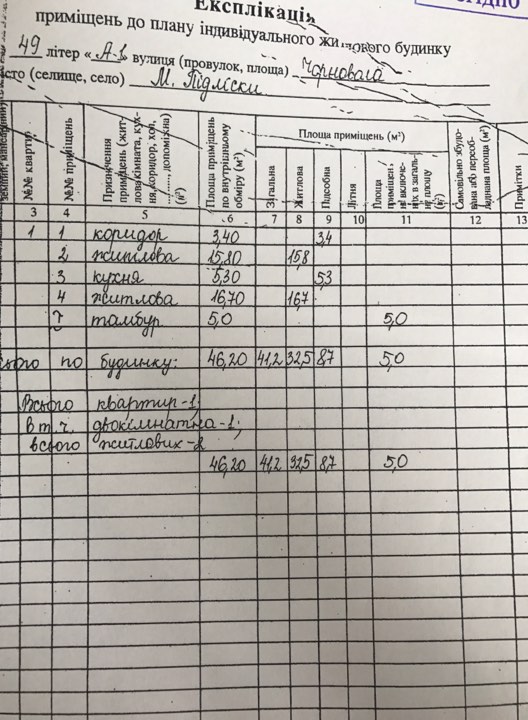 Експлікація
приміщень до плану індивідуального житлового будинку
49 літер « А-1» вулиця (провулок, площа) Чорновола
місто (селище, село) М. Підмски
№№ квартир
№№ приміщень
Призначення приміщень (житлова кімната, кухня, коридор, хол, ........, допоміжна) (м²)
Площа приміщень по внутрішньому обміру (м²)
Площа приміщень (м²)
Загальна
Житлова
Підсобна
Літня
Площа приміщень, не включених в загальну площу (м²)
Самовільно збудована або переобладнана площа (м²)
Примітки
3 4 5 6 7 8 9 10 11 12 13
1 1 коридор 3,40 3,4
2 житлова 15,80 15,8
3 кухня 5,30 5,3
4 житлова 16,70 16,7
тамбур 5,0 5,0
по будинку: 46,20 41,2 32,5 8,7 5,0
Всього квартир-1;
в т.ч. двокімнатна-1;
всього житлових-2
46,20 41,2 32,5 8,7 5,0